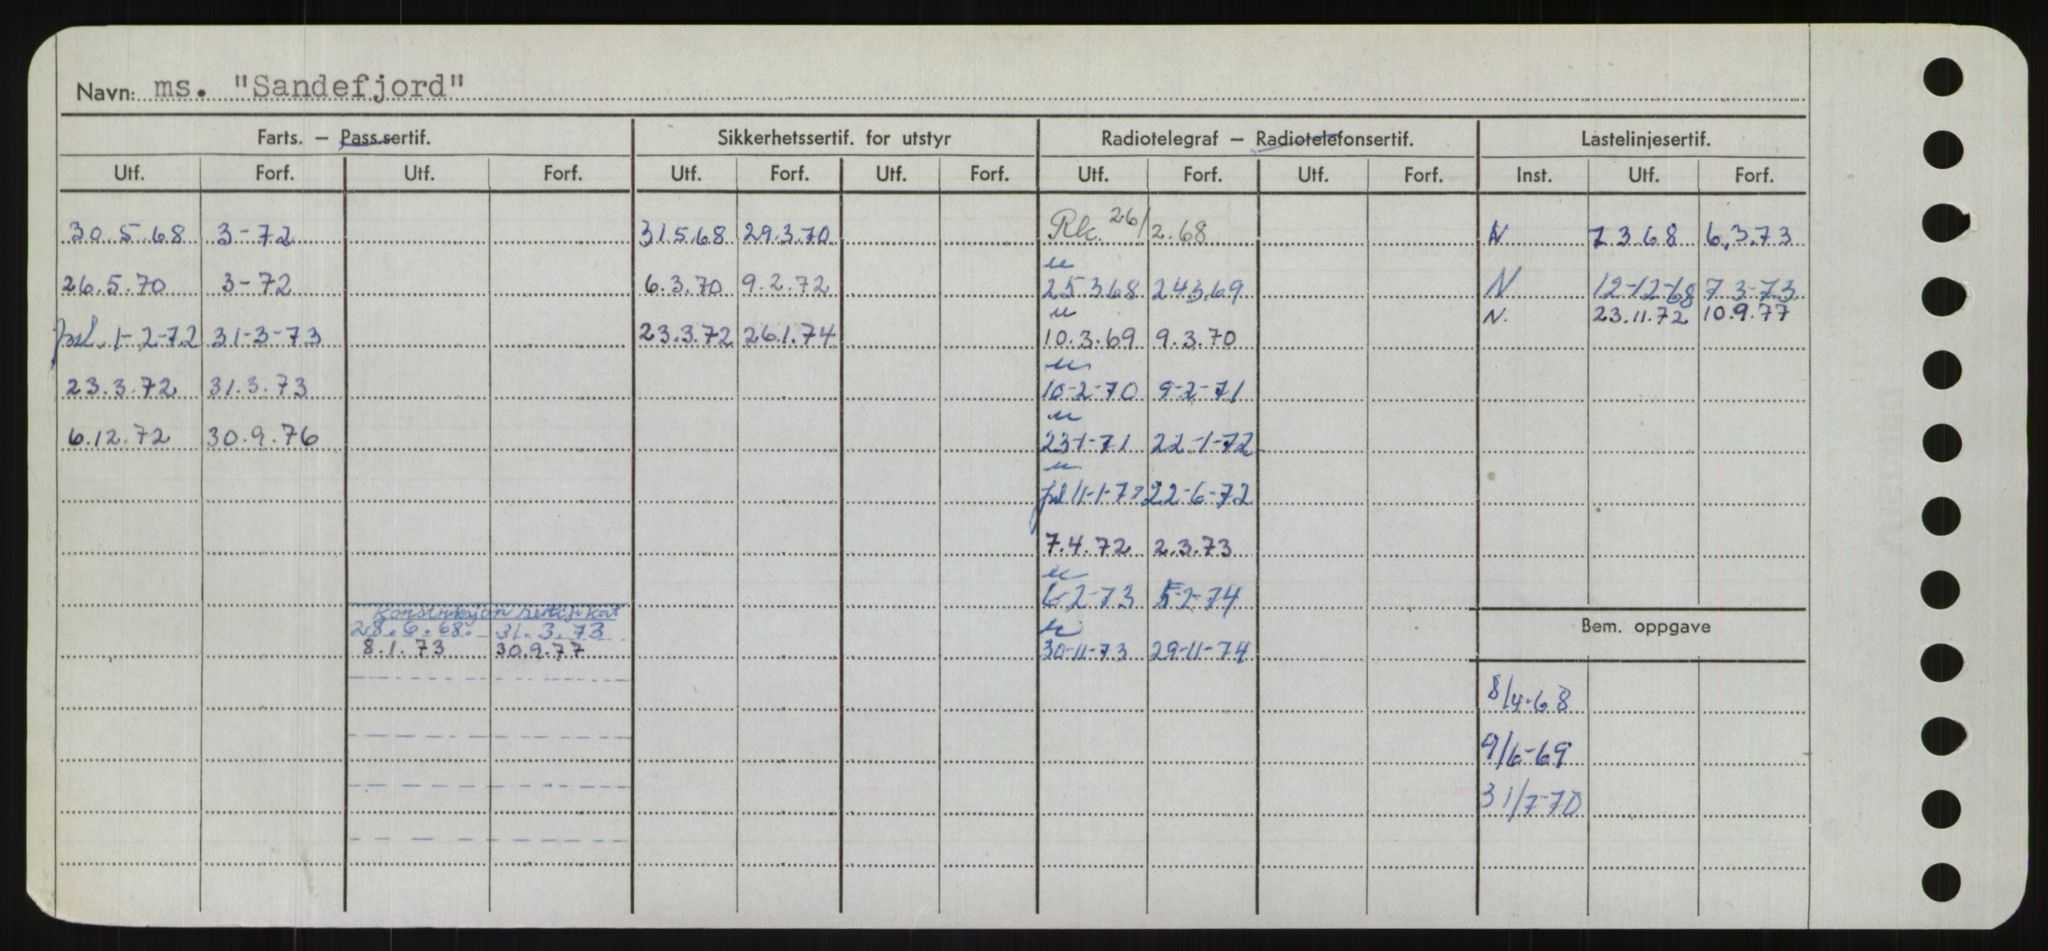 Navn: ms. "Sandefjord"
Farts. — Pass.sertif. Sikkerhetssertif. for utstyr Radiotelegraf — Radiotelefonsertif. Lastelinjesertif.
Utf. Forf. Utf. Forf. Utf. Forf. Utf. Forf. Utf. Forf. Utf. Forf. Inst. Utf. Forf.
30.5.68 3-72 31.5.68 29.3.70 Rk. 26/2.68 N 7.3.68 6.3.73
26.5.70 3-72 6.3.70 9.2.72 25.3.68 24.3.69 N 12-12-68 7.3-73
N. 23.11.72 10.9.77
1-2-72 31-3-73 23.3.72 26.1.74 10.3.69 9.3.70
23.3.72 31.3.73 10-2-70 9-2-71
6.12.72 30.9.76 23-1-71 22-1-72
11-1-72 22-6-72
7.4.72 2.3.73
Konstruksjonsertifikat 6-2-73 5-2-74
28.6.68. 31.3.73 Bem. oppgave
8.1.73 30.9.77 30-11-73 29-11-74
8/4-68
9/6-69
31/7-70